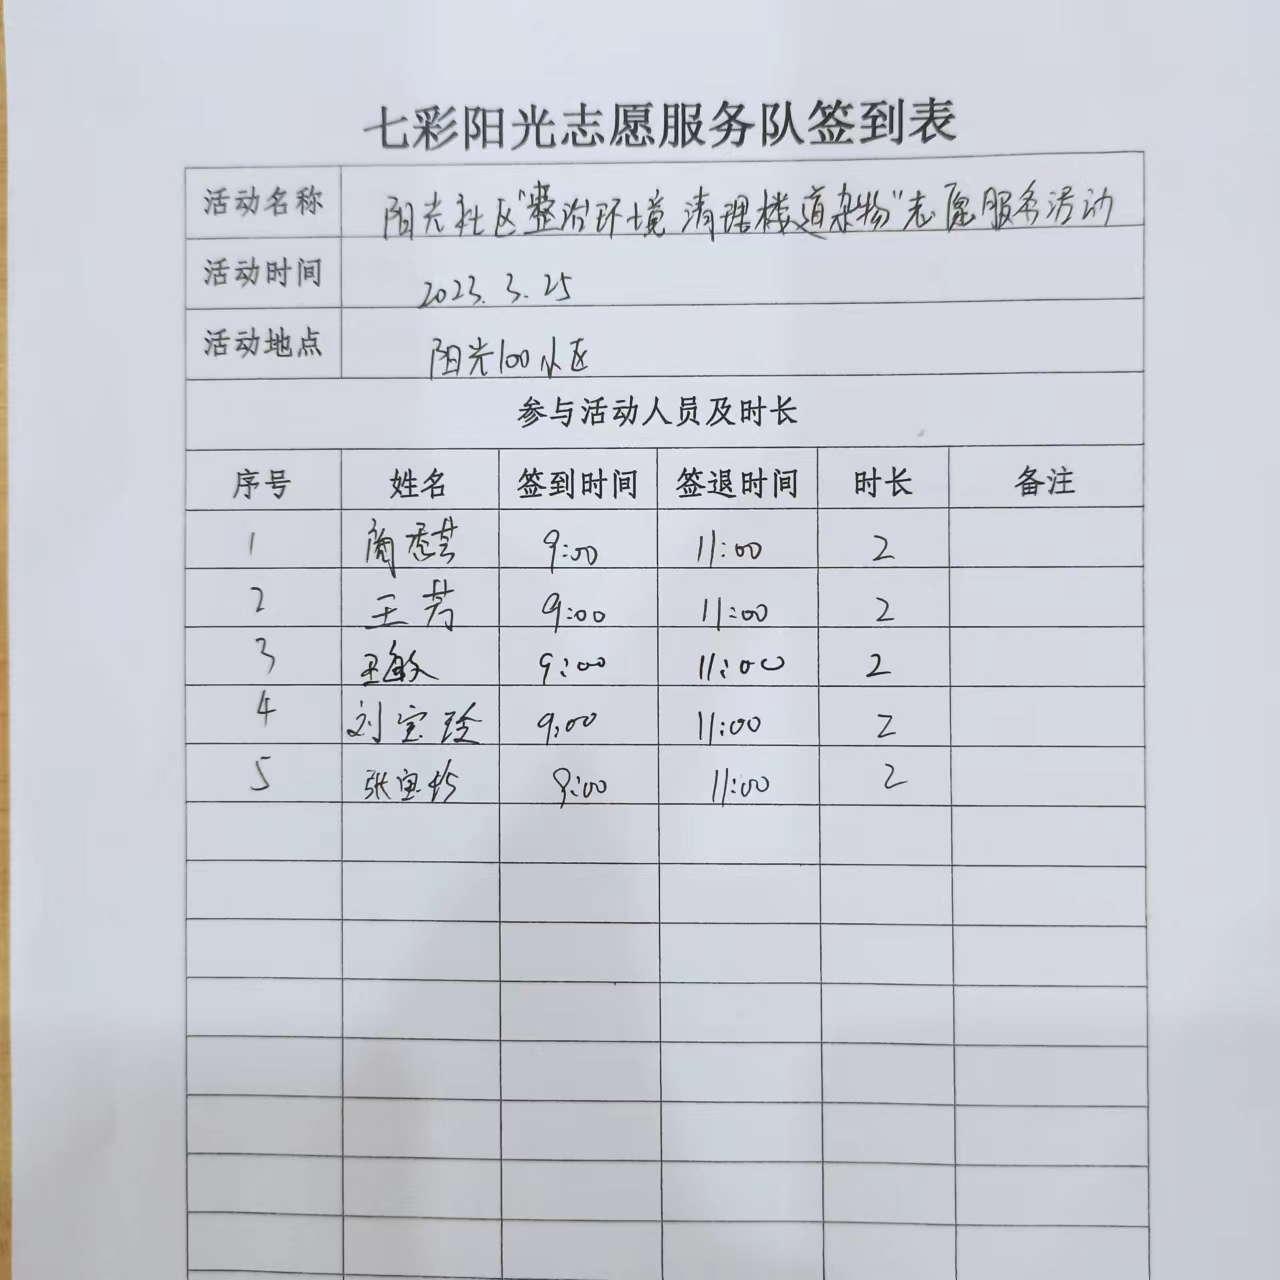 七彩阳光志愿服务队签到表
活动名称 阳光社区"整治环境 清理楼道杂物"志愿服务活动
活动时间 2023.3.25
活动地点 阳光100小区
参与活动人员及时长
序号 姓名 签到时间 签退时间 时长 备注
1 9:00 11:00 2
2 王芳 9:00 11:00 2
3 王敏 9:00 11:00 2
4 刘宝玲 9:00 11:00 2
5 张宝 9:00 11:00 2